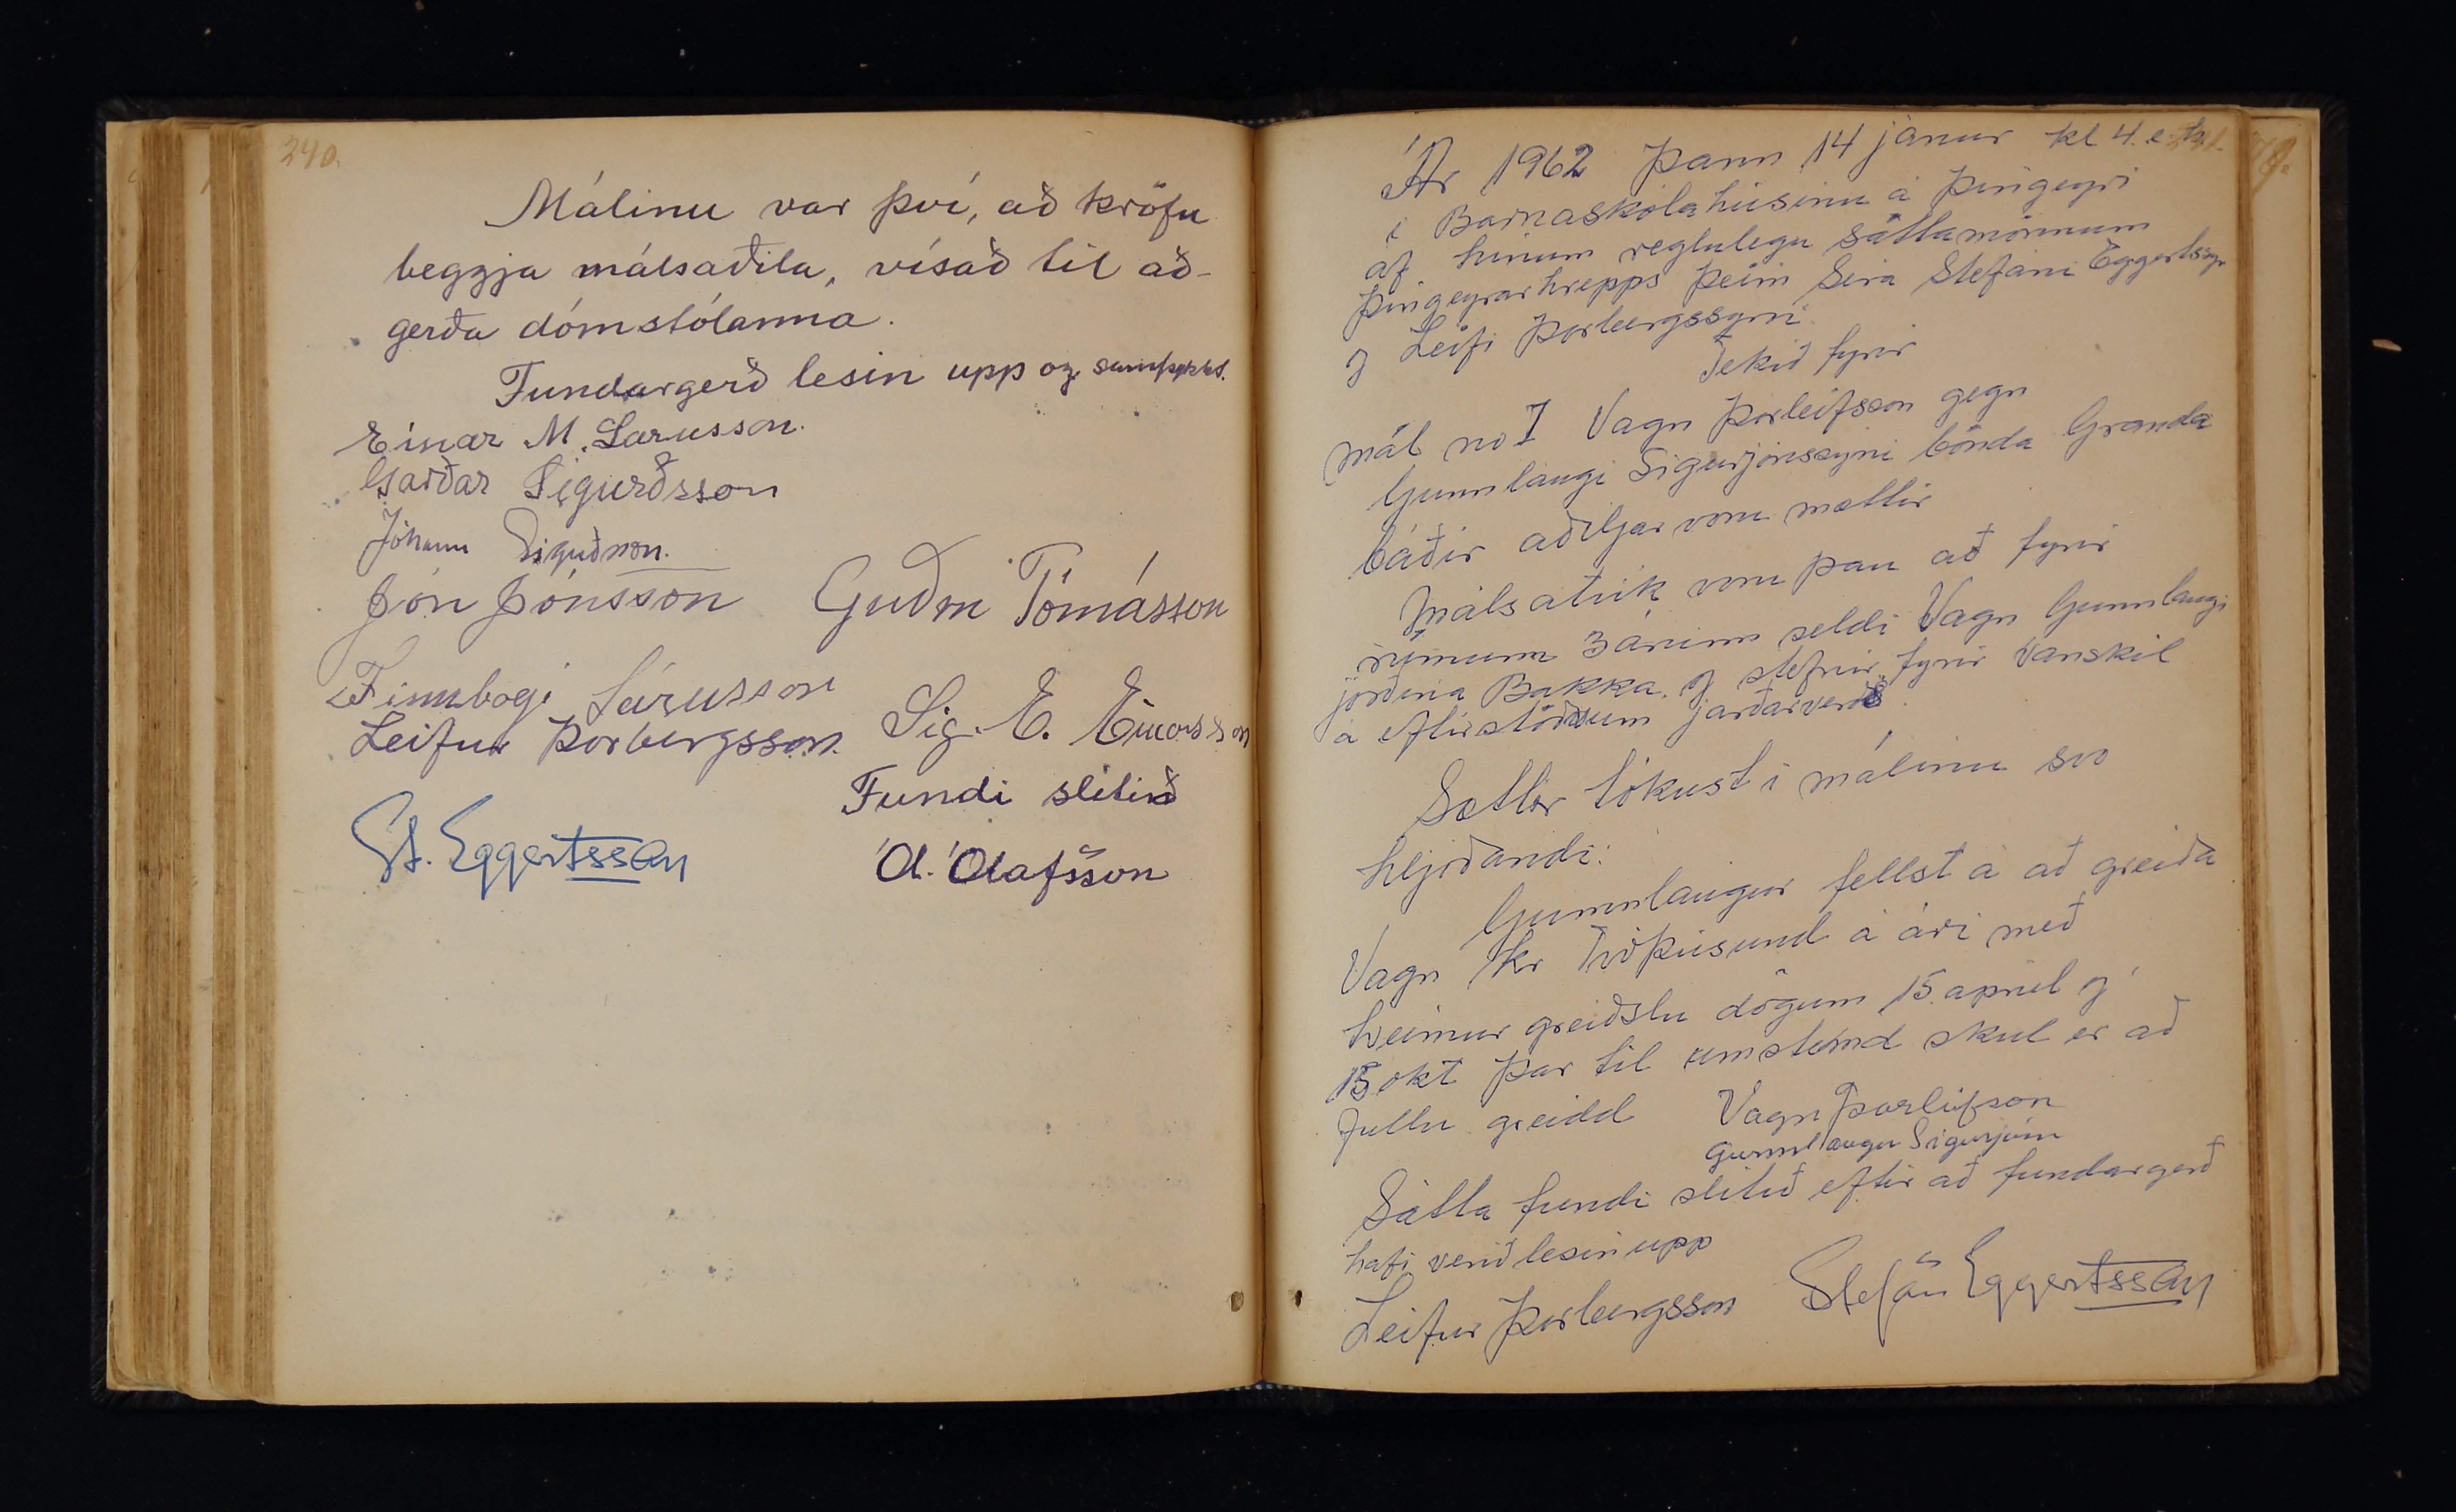 240.
Málinu var því, að kröfu
beggja málsaðila, vísað til að-
gerða dómstólanna.
Fundargerð lesin upp og samþykkt.
Einar M. Larusson.
Garðar Sigurðsson
Jóhann Sigurðsson.
Jón Jónsson Guðm Tómásson
Finnbogi Lárusson
Leifur Þorbergsson. Sig. E. Einarsson
Fundi slitið
St. Eggertsson
Ól. Ólafsson
Ár 1962 Þann 14 janur kl 4. e.h.
í Barnaskólahúsinu á Þingeyri
af hinum reglulegu sáttamönnum
Þingeyrarhrepps þeim Séra Stefáni Eggertssyni
og Leifi Þorbergssyni
Tekið fyrir
mál no I Vagn Þorleifsson gegn
Gunnlaugi Sigurjónssyni bónda Granda
báðir aðiljar voru mættir
Málsatvik voru þau að fyrir
rúmum 3 árum seldi Vagn Gunnlaugi
jörðina Bakka. og stefnir fyrir vanskil
á eftirstöðvum jarðarverðs
Sættir tókust í málinu svo
hljóðandi:
Gunnlaugur fellst á að greiða
Vagn kr Tvöþúsund á ári með
tveimur greiðslu dögum 15. apríl og
15 okt þar til umstemd skul er að
fullu greidd Vagn Þorleifsson
Gunnlaugur Sigurjóns
Sátta fundi slitið eftir að fundargerð
hafi verið lesin upp
Leifur Þorbergsson Stefán Eggertsson